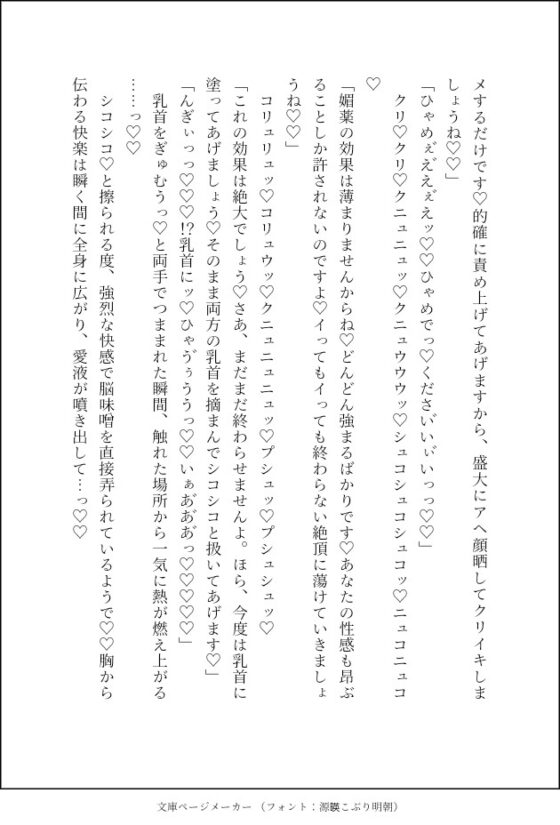 メするだけです♡的確に責め上げてあげますから、盛大にアヘ顔晒してクリイキしま
しょうね♡♡」
「ひゃめぇ゛え゛えぇ゛えッ♡♡ひゃめでっ♡くださ゛いいぃ゛いっっ♡♡」
クリ♡クリ♡クニュニュッ♡クニュウウウッ♡シュコシュコシュコッ♡ニュコニュコ
♡
「媚薬の効果は薄まりませんからね♡どんどん強まるばかりです♡あなたの性感も昂ぶ
ることしか許されないのですよ♡イってもイっても終わらない絶頂に蕩けていきましょ
うね♡♡」
コリュリュッ♡コリュウッ♡クニュニュニュッ♡プシュッ♡プシュシュッ♡
「これの効果は絶大でしょう♡さあ、まだまだ終わらせませんよ。ほら、今度は乳首に
塗ってあげましょう♡そのまま両方の乳首を摘まんでシコシコと扱いてあげます♡」
「んぎぃっっ♡♡♡!?乳首にッ♡ひゃう゛ぅううっ♡♡いぁあ゛あ゛あ゛っ♡♡♡♡♡」
乳首をぎゅむうっ♡と両手でつままれた瞬間、触れた場所から一気に熱が燃え上がる
……っ♡♡
シコシコ♡と擦られる度、強烈な快感で脳味噌を直接弄られているようで♡♡胸から
伝わる快楽は瞬く間に全身に広がり、愛液が噴き出して…っ♡♡
文庫ページメーカー（フォント：源暎こぶり明朝）